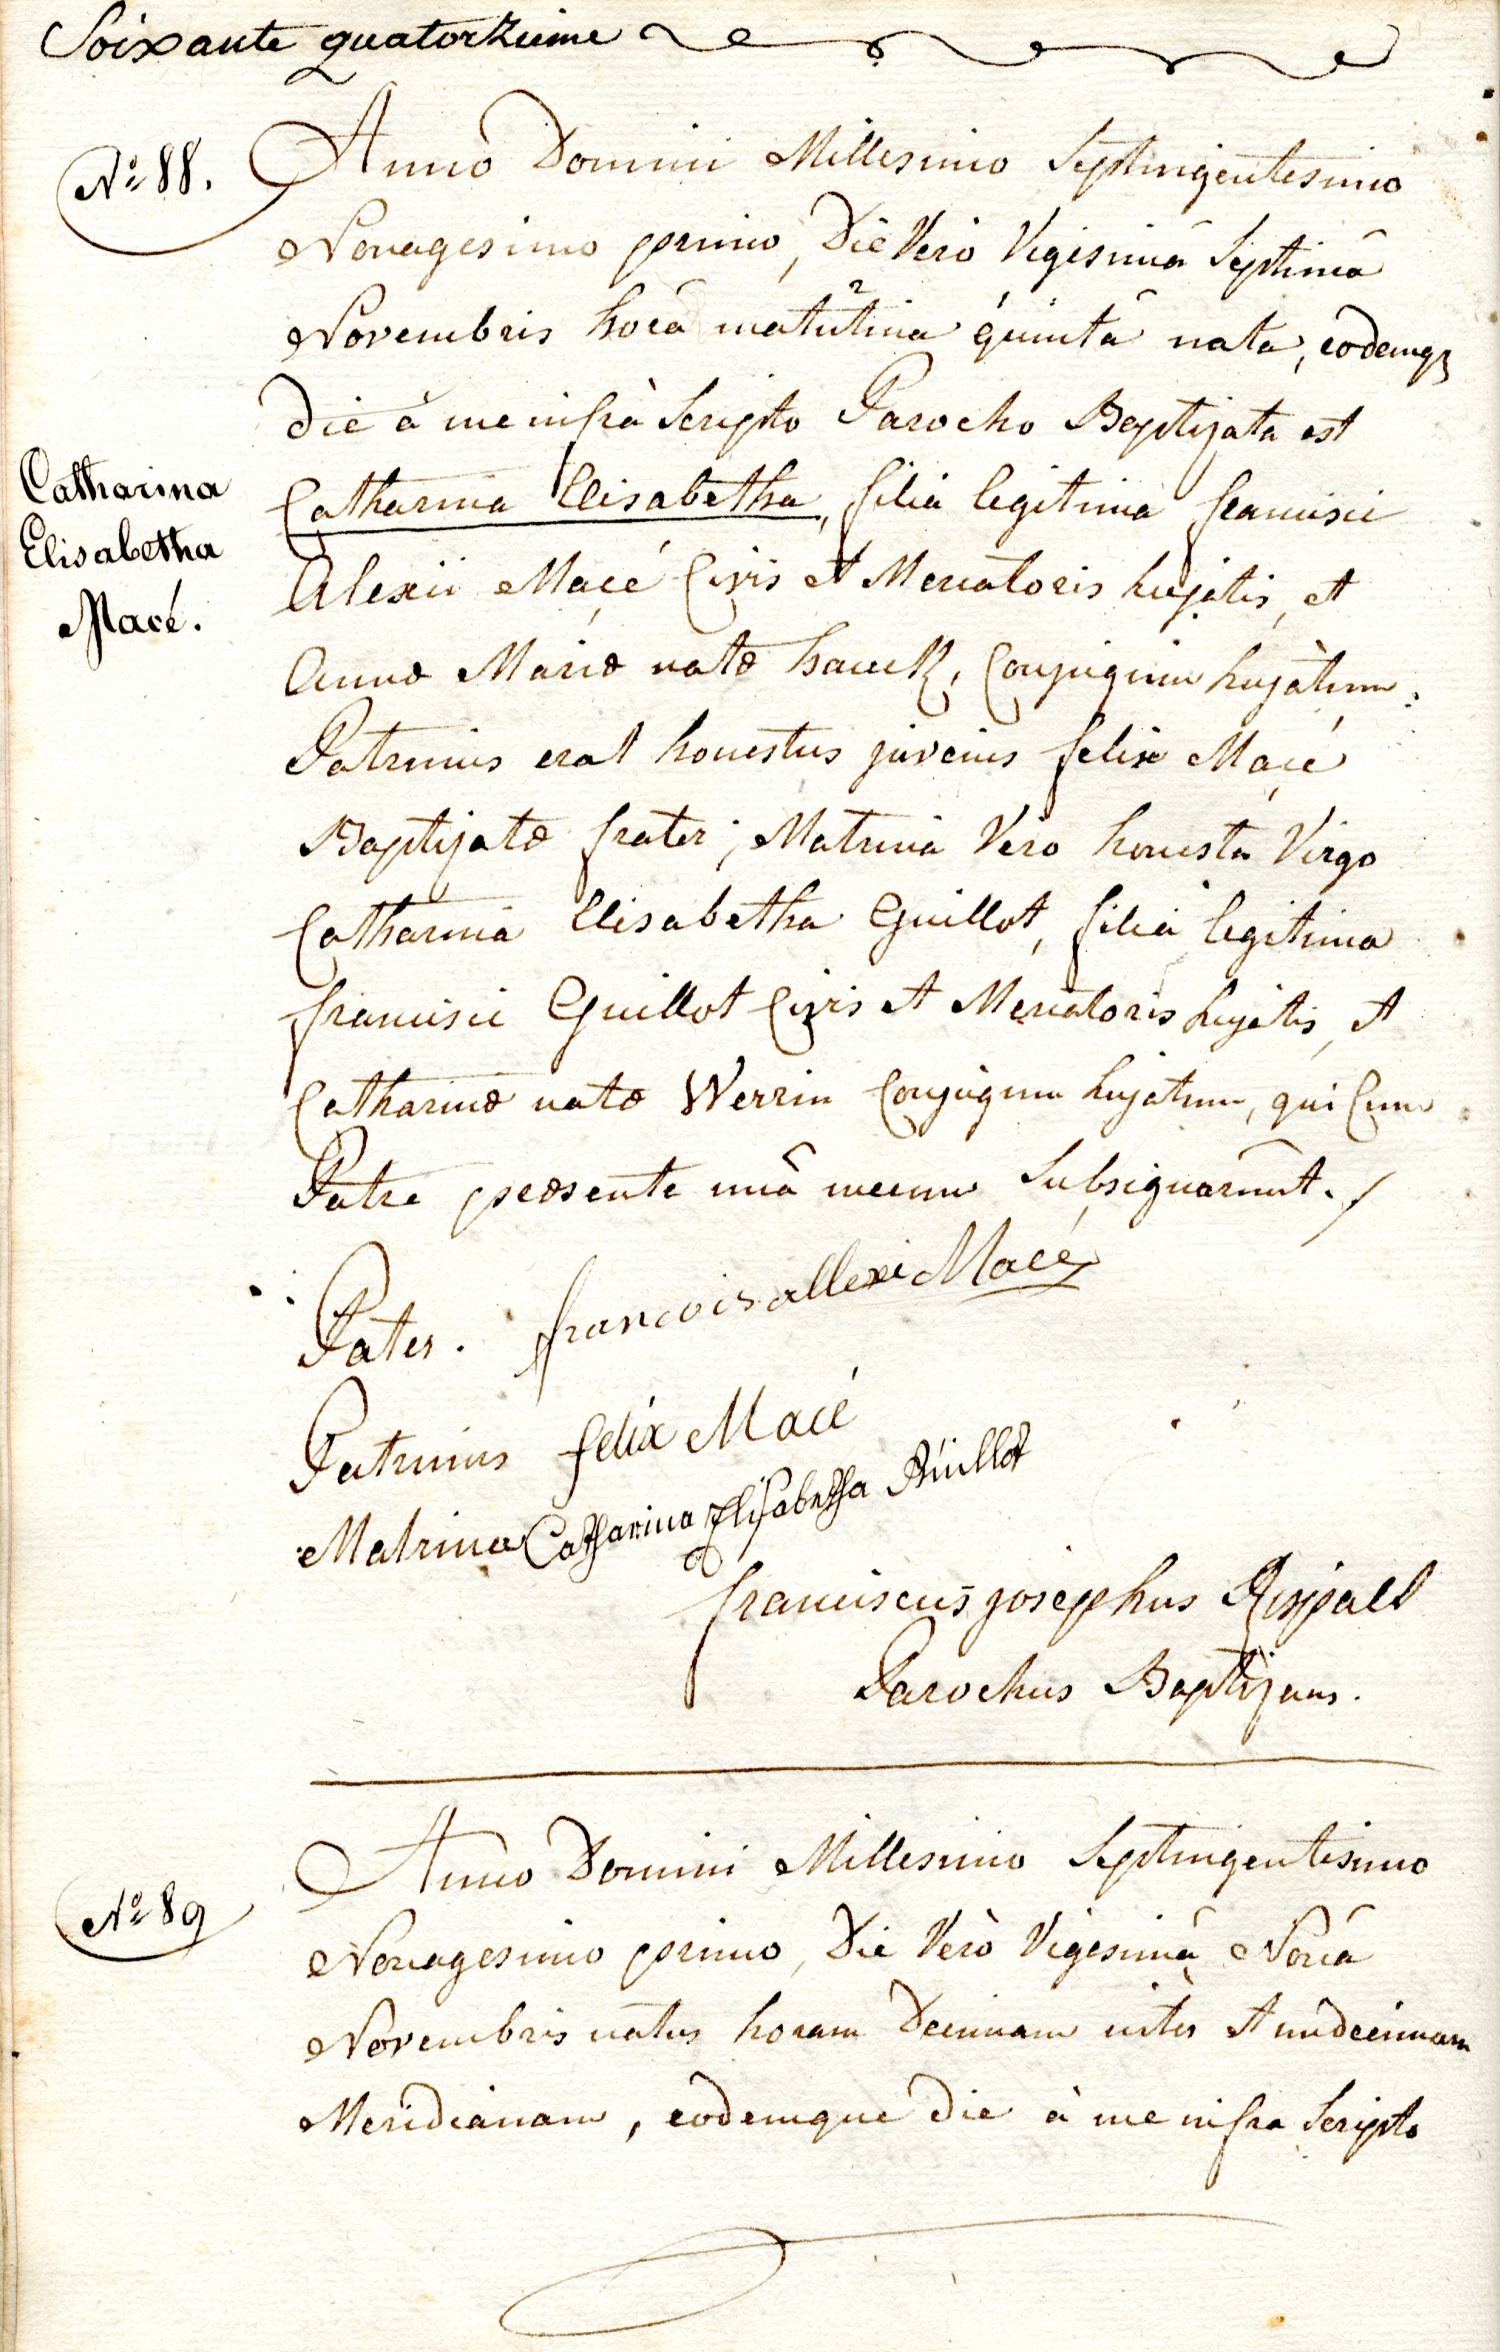 Soixante quatorzieme
Nº 88. Anno Domini Millesimo Septingentesimo
Nonagesimo primo, Die Vero Vigesimâ Septimâ
Novembris horâ matutina quintâ nata, eodemq3
die à me infrà Scripto Parocho Baptizata est
Catharina Elisabetha, filia legitima francisci
Catharina
Elisabetha
Macé.
Alexii Macé Civis et Mercatoris hujatis, et
Annæ Mariæ natæ hauck, Conjugum hujatum.
Patrinus erat honestus juvenis felix Macé
Baptizatæ frater; Matrina Vero honesta Virgo
Catharina Elisabetha Guillot, filia legitima
francisci Guillot Civis et Mercatoris hujatis, et
Catharinæ natæ Werrin Conjugum hujatum, qui Cum
Patre præsente unâ mecum Subsignarunt.
Pater. francois allexi Macé
Patrinus felix Macé
Matrina Catharina Elisabetha Guillot
franciscus josephus
Parochus Baptizans.
Nº 89 Anno Domini Millesimo Septingentesimo
Nonagesimo primo, Die Verò Vigesimâ Nonâ
Novembris natus horam Decimam inter et undecimam
Meridianam, eodemque die à me infra Scripto